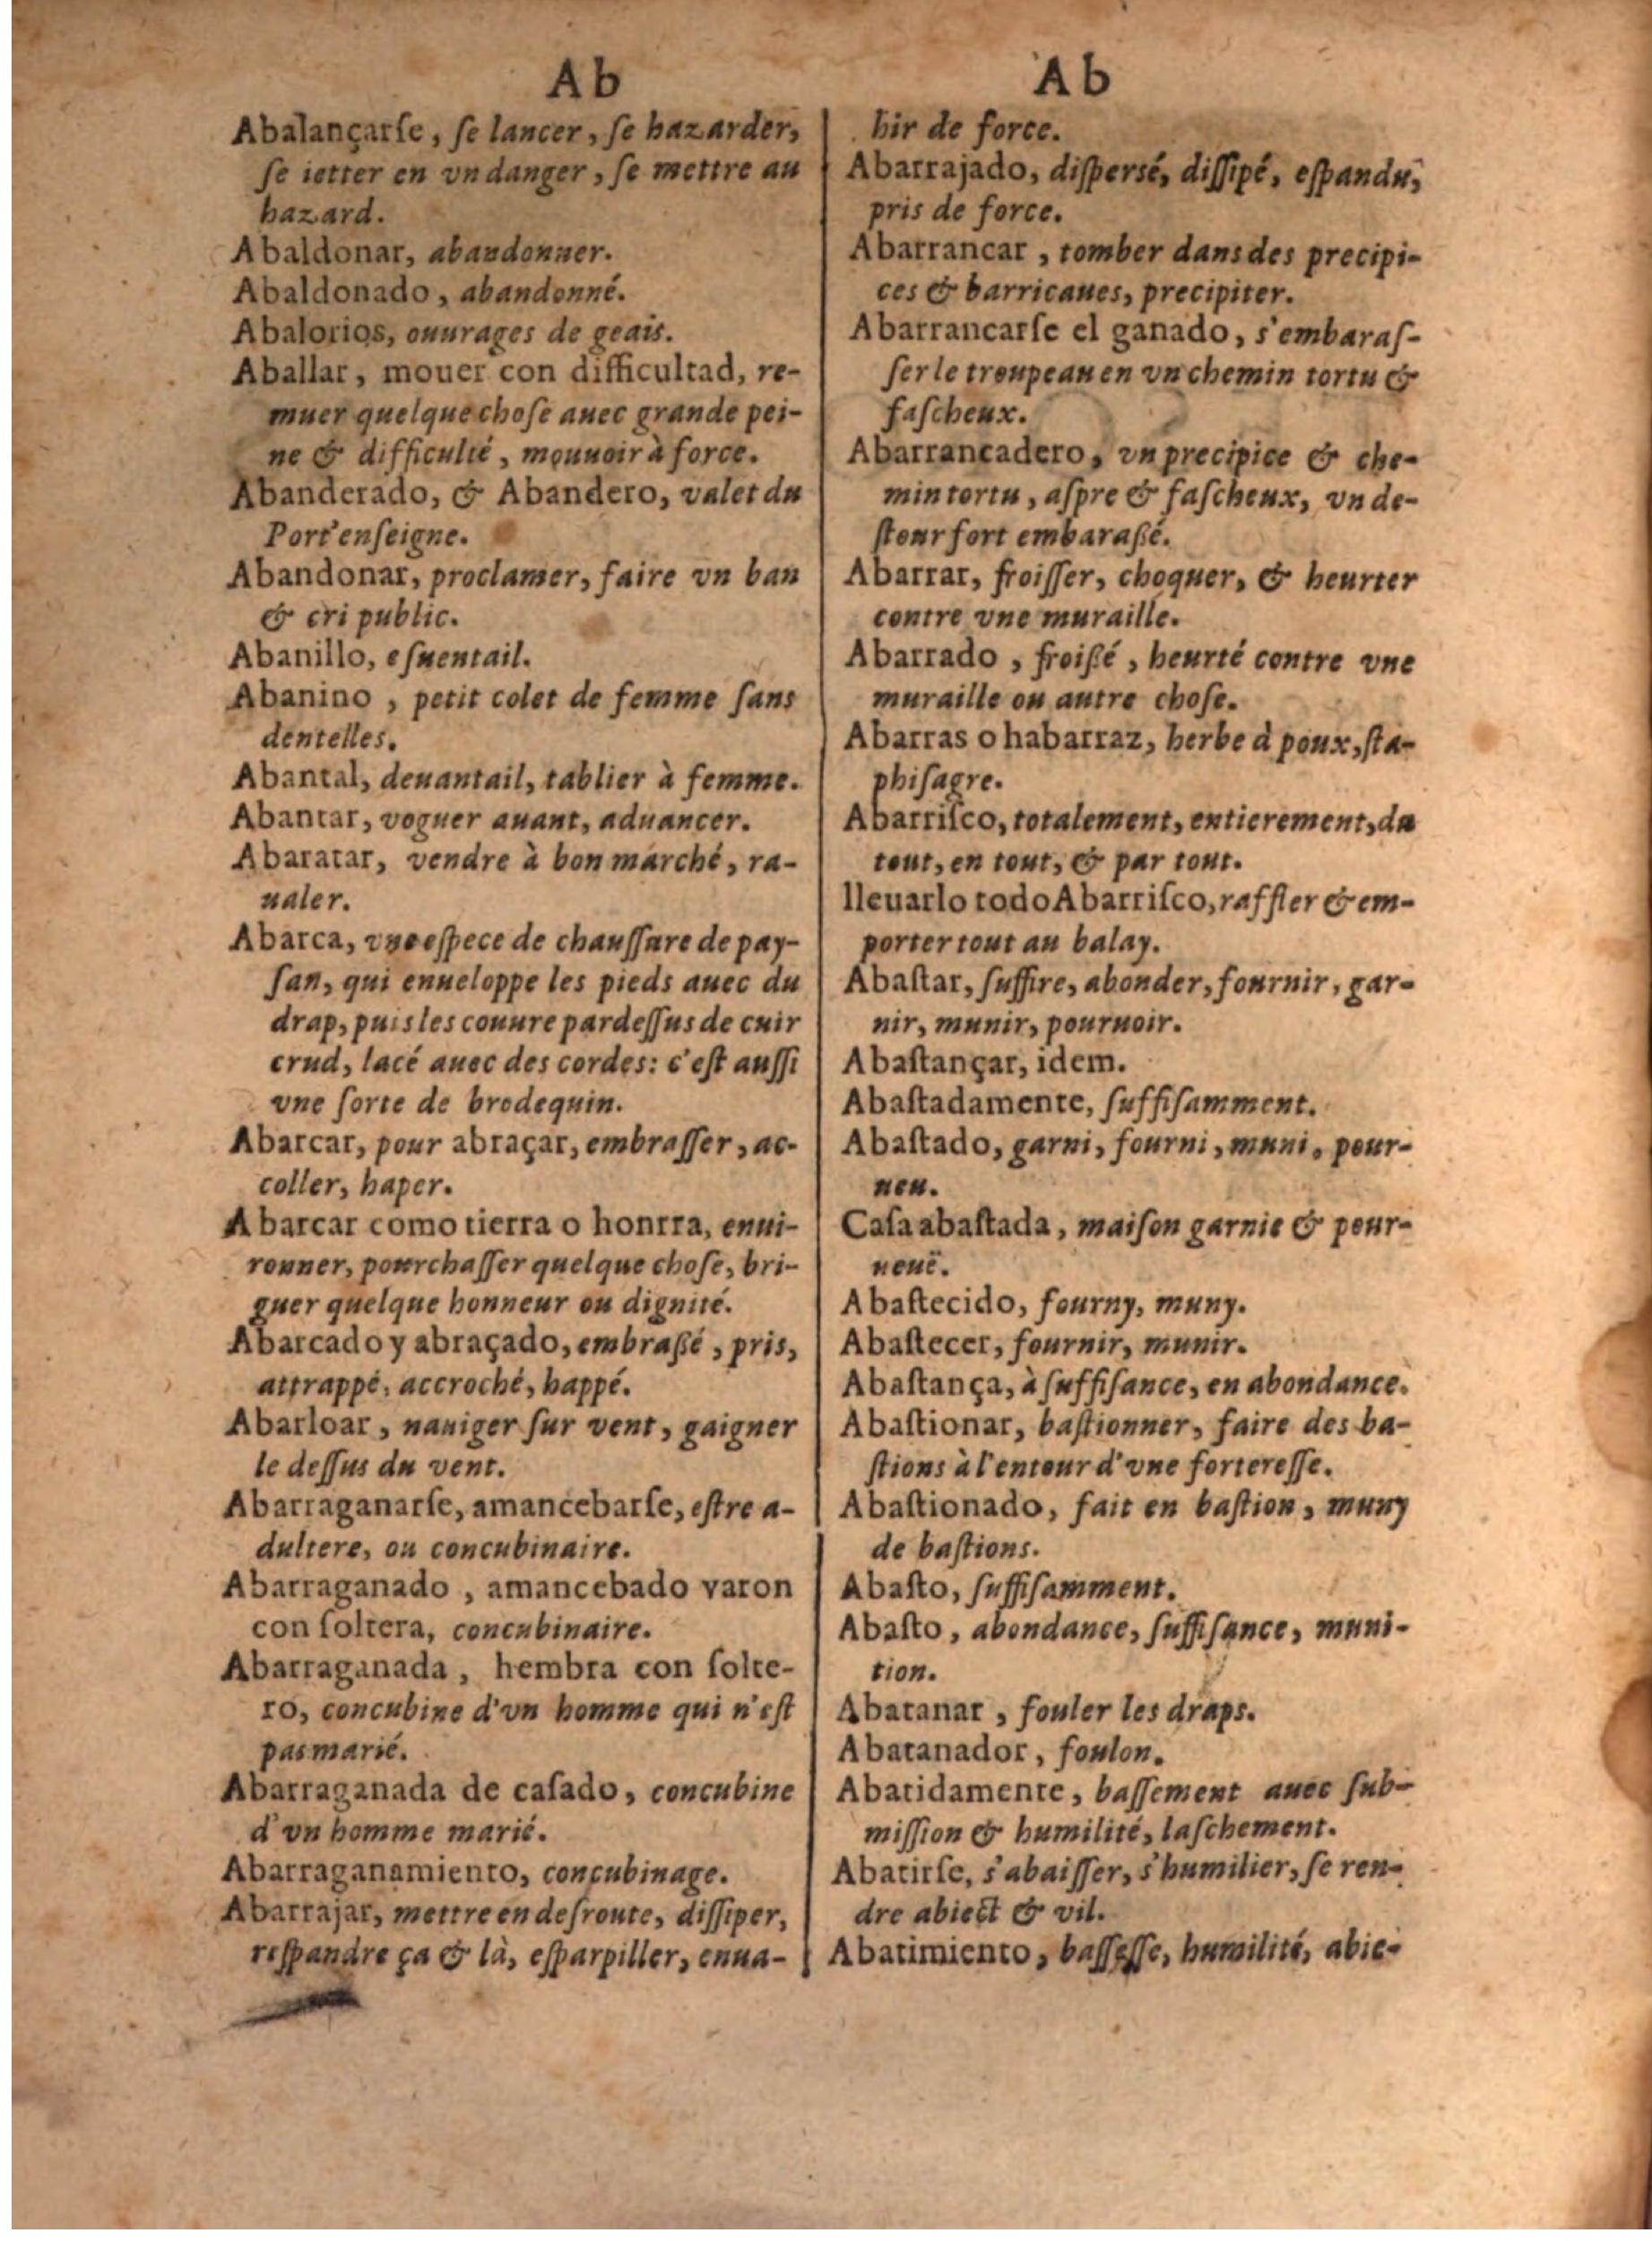 Ab
Abalançarſe, ſe lancer, ſe hazarder,
ſe ietter en vn danger, ſe mettre au
hazard.
Abaldonar, abandonner.
Abaldonado, abandonné.
Abalorios, ouurages de geais.
Aballar, mouer con difficultad, re-
muer quelque choſe auec grande pei-
ne & difficulté, mouuoir à force.
Abanderado, & Abandero, valet du
Port'enſeigne.
Abandonar, proclamer, faire vn ban
& cri public.
Abanillo, eſuentail.
Abanino, petit colet de femme ſans
dentelles.
Abantal, deuantail, tablier à femme.
Abantar, voguer auant, aduancer.
Abaratar, vendre à bon marché, ra-
ualer.
Abarca, vne eſpece de chauſſure de pay-
ſan, qui enueloppe les pieds auec du
drap, puis les couure pardeſſus de cuir
crud, lacé auec des cordes: c'eſt auſſi
vne ſorte de brodequin.
Abarcar, pour abraçar, embraſſer, ac-
coller, haper.
Abarcar como tierra o honrra, enui-
ronner, pourchaſſer quelque choſe, bri-
guer quelque honneur ou dignité.
Abarcado y abraçado, embraßé, pris,
attrappé, accroché, happé.
Abarloar, nauiger ſur vent, gaigner
le deſſus du vent.
Abarraganarſe, amancebarſe, eſtre a-
dultere, ou concubinaire.
Abarraganado, amancebado varon
con ſoltera, concubinaire.
Abarraganada, hembra con ſolte-
ro, concubine d'vn homme qui n'eſt
pas marié.
Abarraganada de caſado, concubine
d'vn homme marié.
Abarraganamiento, concubinage.
Abarrajar, mettre en deſroute, diſſiper,
reſpandre ça & là, eſparpiller, enua-
Ab
hir de force.
Abarrajado, diſpersé, diſſipé, eſpandu,
pris de force.
Abarrancar, tomber dans des precipi-
ces & barricaues, precipiter.
Abarrancarſe el ganado, s'embaraſ-
ſer le troupeau en vn chemin tortu &
faſcheux.
Abarrancadero, vn precipice & che-
min tortu, aſpre & faſcheux, vn de-
ſtour fort embaraßé.
Abarrar, froiſſer, choquer, & heurter
contre vne muraille.
Abarrado, froißé, heurté contre vne
muraille ou autre choſe.
Abarras o habarraz, herbe à poux, ſta-
phiſagre.
Abarriſco, totalement, entierement, du
tout, en tout, & par tout.
lleuarlo todo Abarriſco, raffler & em-
porter tout au balay.
Abaſtar, ſuffire, abonder, fournir, gar-
nir, munir, pouruoir.
Abaſtançar, idem.
Abaſtadamente, ſuffiſamment.
Abaſtado, garni, fourni, muni, pour-
ueu.
Caſa abaſtada, maiſon garnie & pour-
ueuë.
Abaſtecido, fourny, muny.
Abaſtecer, fournir, munir.
Abaſtança, à ſuffiſance, en abondance.
Abaſtionar, baſtionner, faire des ba-
ſtions à l'entour d'vne fortereſſe.
Abaſtionado, fait en baſtion, muny
de baſtions.
Abaſto, ſuffiſamment.
Abaſto, abondance, ſuffiſance, muni-
tion.
Abatanar, fouler les draps.
Abatanador, foulon.
Abatidamente, baſſement auec ſub-
miſſion & humilité, laſchement.
Abatirſe, s'abaiſſer, s'humilier, ſe ren-
dre abiect & vil.
Abatimiento, baſſeſſe, humilité, abie-